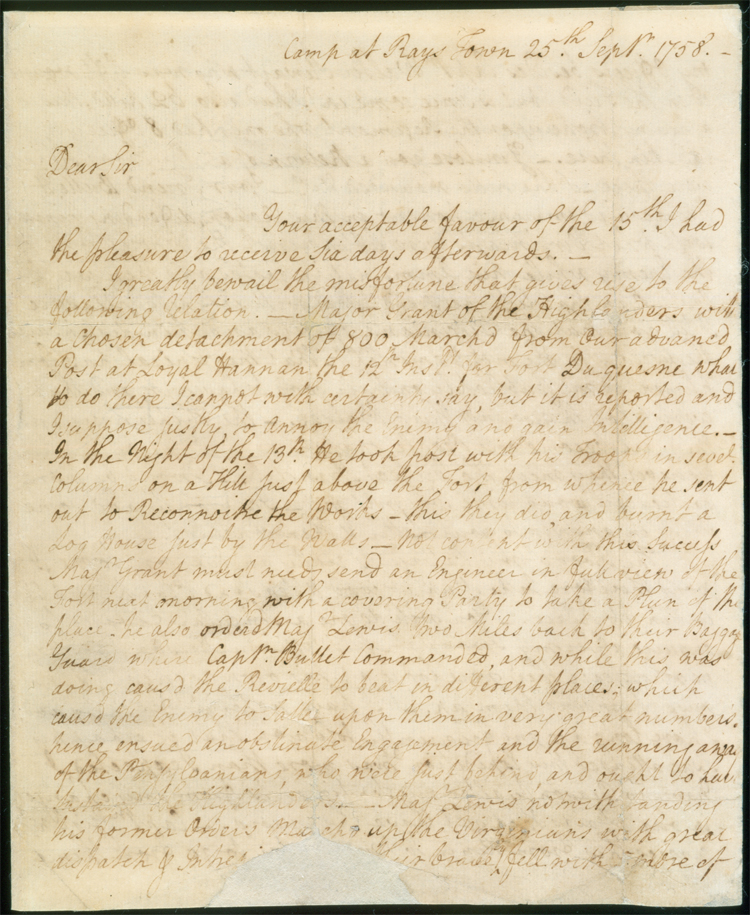 Camp at Rays Town 25.th Septr. 1758. –
Dear Sir
Your acceptable favour of the 15th. I had
the pleasure to receive Six days afterwards. –
I greatly bewail the misfortune that gives rise to the
following relation. – Major Grant of the Highlanders with
a Chosen detachment of 800 Marchd from our advanced
Post at Loyal Hannan the 12th Inst. for Fort Du quesne what
to do there I cannot with certainty say, but it is reported and
I suppose justly, to Annoy the Enemy and gain Intelligence. –
In the Night of the 13th. He took post with his Troops in sevel.
Columns on a Hill just above the Fort from whence he sent
out to Reconnoitre the Works – this they did, and burnt a
Log House just by the Walls – Not content with this Success
Majr. Grant must needs send an Engineer in full view of the
Fort next morning, with a covering Party to take a Plan of the
place he also orderd Majr. Lewis two Miles back to their Baggage
Guard where Captn. Bullet Commanded, and while this was
doing causd the Revielle to beat in different places; which
causd the Enemy to Salle upon them in very great numbers.
hence ensued an obstinate Engagement and the running away
of the Pensylvanians, who were just behind, and ought to have
the Highlanders. – Majr. Lewis notwithstanding
his former Orders Marchd up the Virginians with great
dispatch &amp; their brave fell with more of